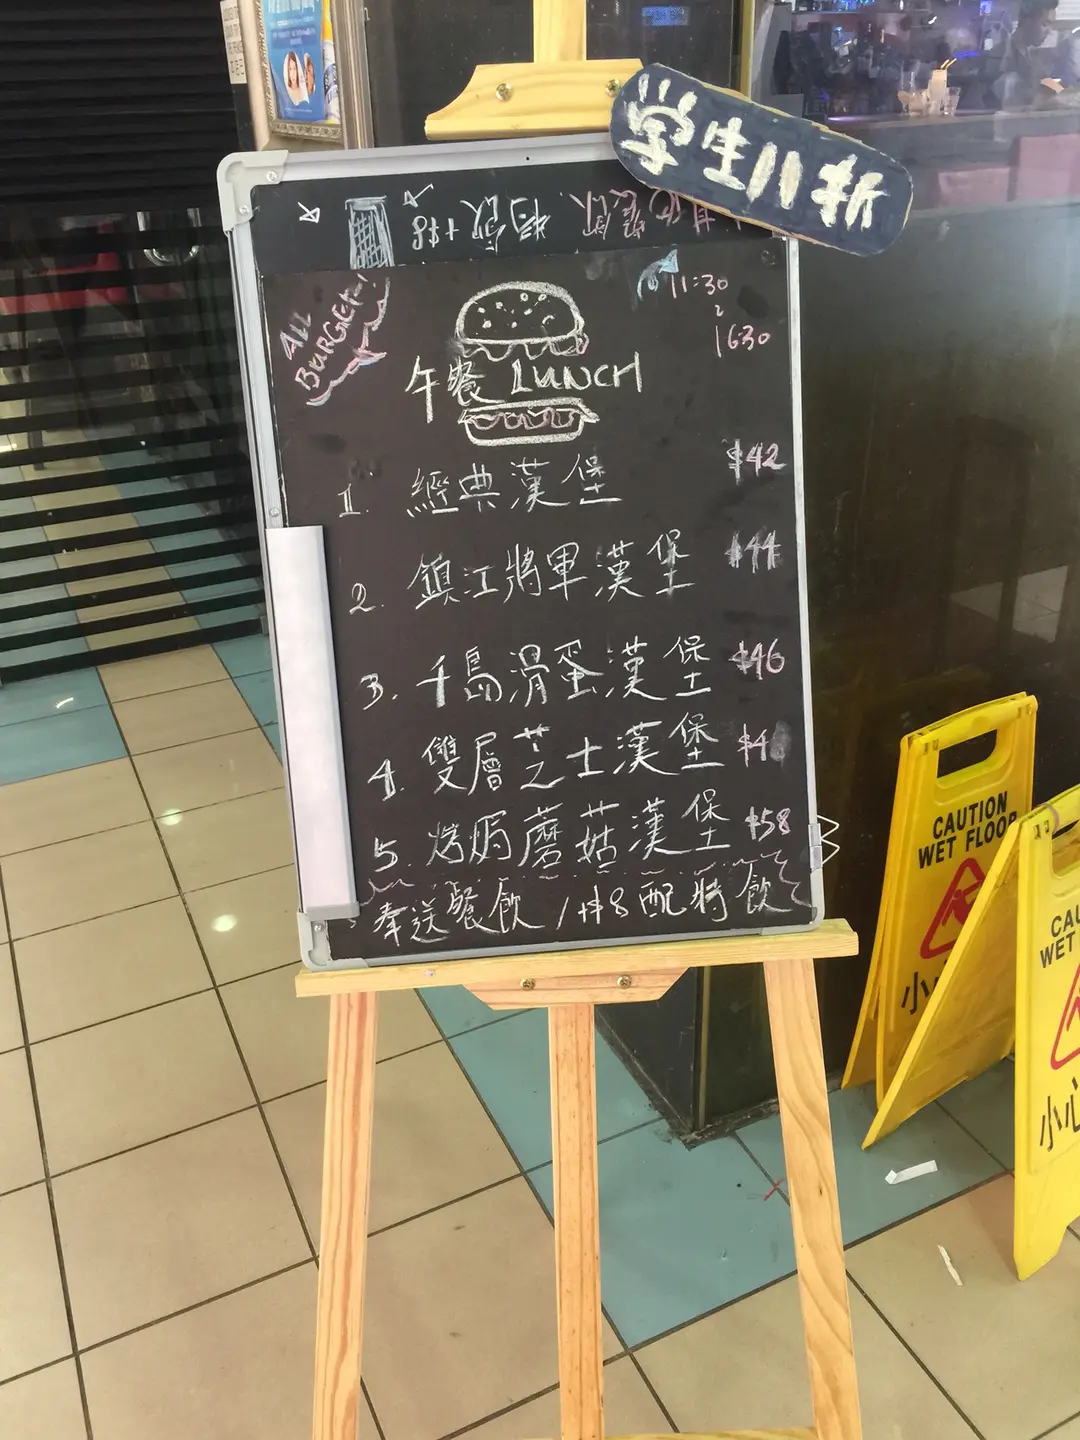 学生八折
特飲+$8
其他餐飲
11:30
2
1630
ALL
BURGER~!
午餐 LUNCH
1. 經典漢堡 $42
2. 鎮江將軍漢堡 $44
3. 千島滑蛋漢堡 $46
4. 雙層芝士漢堡 $4
5. 烤焗蘑菇漢堡 $58
奉送餐飲/+$8配特飲
CAUTION
WET FLOOR
小心
WET
小心